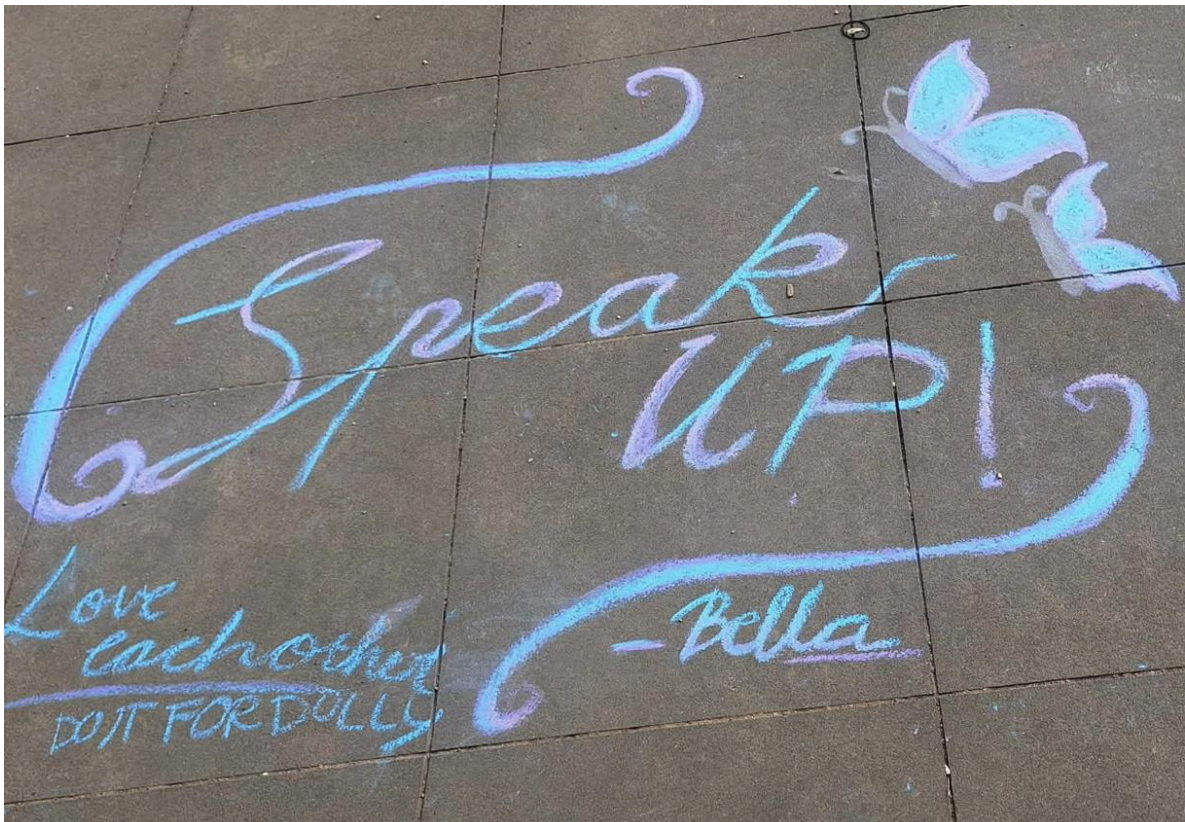 Speak
UP!
- Bella
Love
eachother
DO IT FOR DOLLY